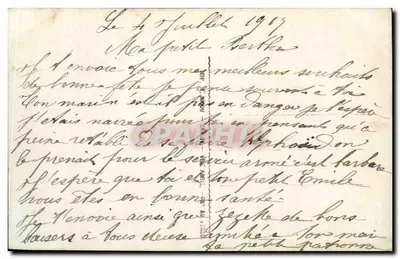 Le 4 Juillet 1917
Ma petit Berthe
Je t'envoie tous mes meilleurs souhaits
de bonne fête je pense souvent à toi
Ton mari n'est il pas en danger je l'espère
J'étais navrée pour toi en pensant qu'à
peine rétablie de sa
le prenait pour le service armé c'est barbare
J'espère que toi et ton petit Emile
vous êtes en bonne santé
Je t'envoie ainsi que de bons
baisers à tous deux amitié à ton mari
Ta petit